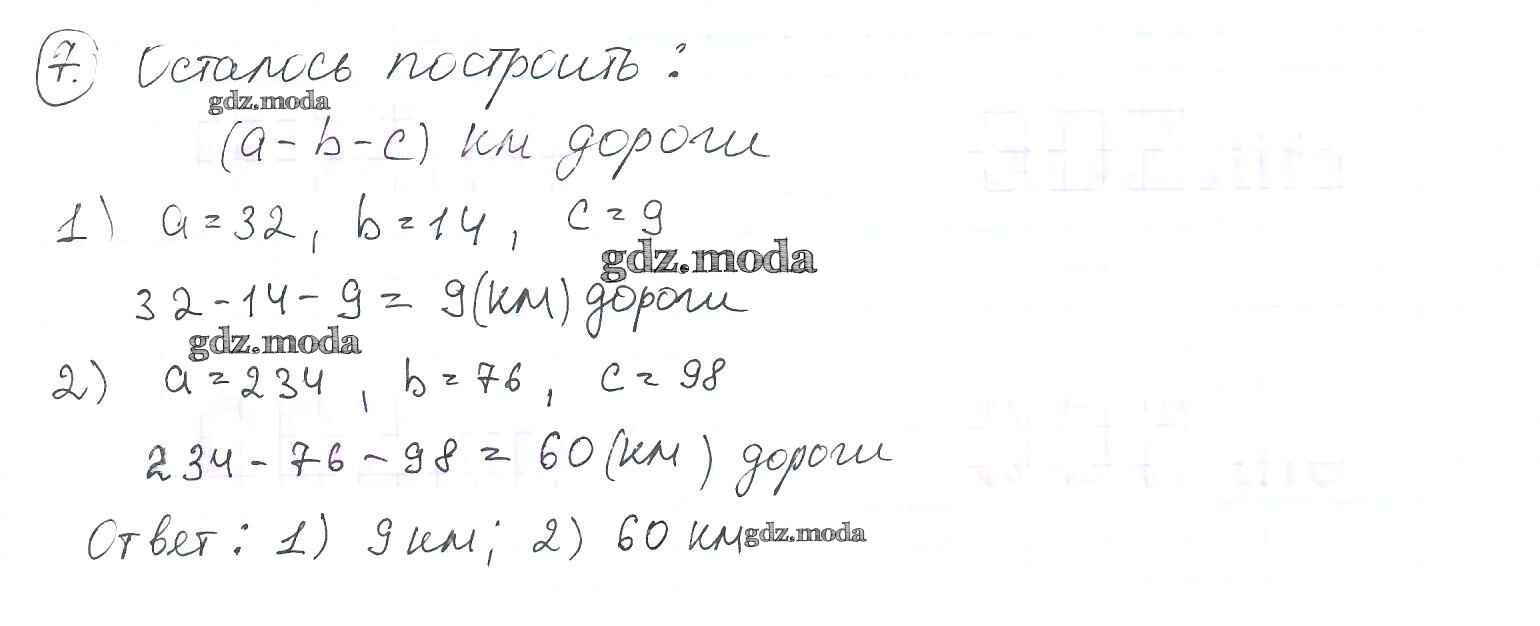 7. Осталось построить:
gdz.moda
(a - b - c) км дороги
1) a = 32, b = 14, c = 9
gdz.moda
32 - 14 - 9 = 9 (км) дороги
gdz.moda
2) a = 234, b = 76, c = 98
234 - 76 - 98 = 60 (км) дороги
Ответ: 1) 9 км; 2) 60 км
gdz.moda